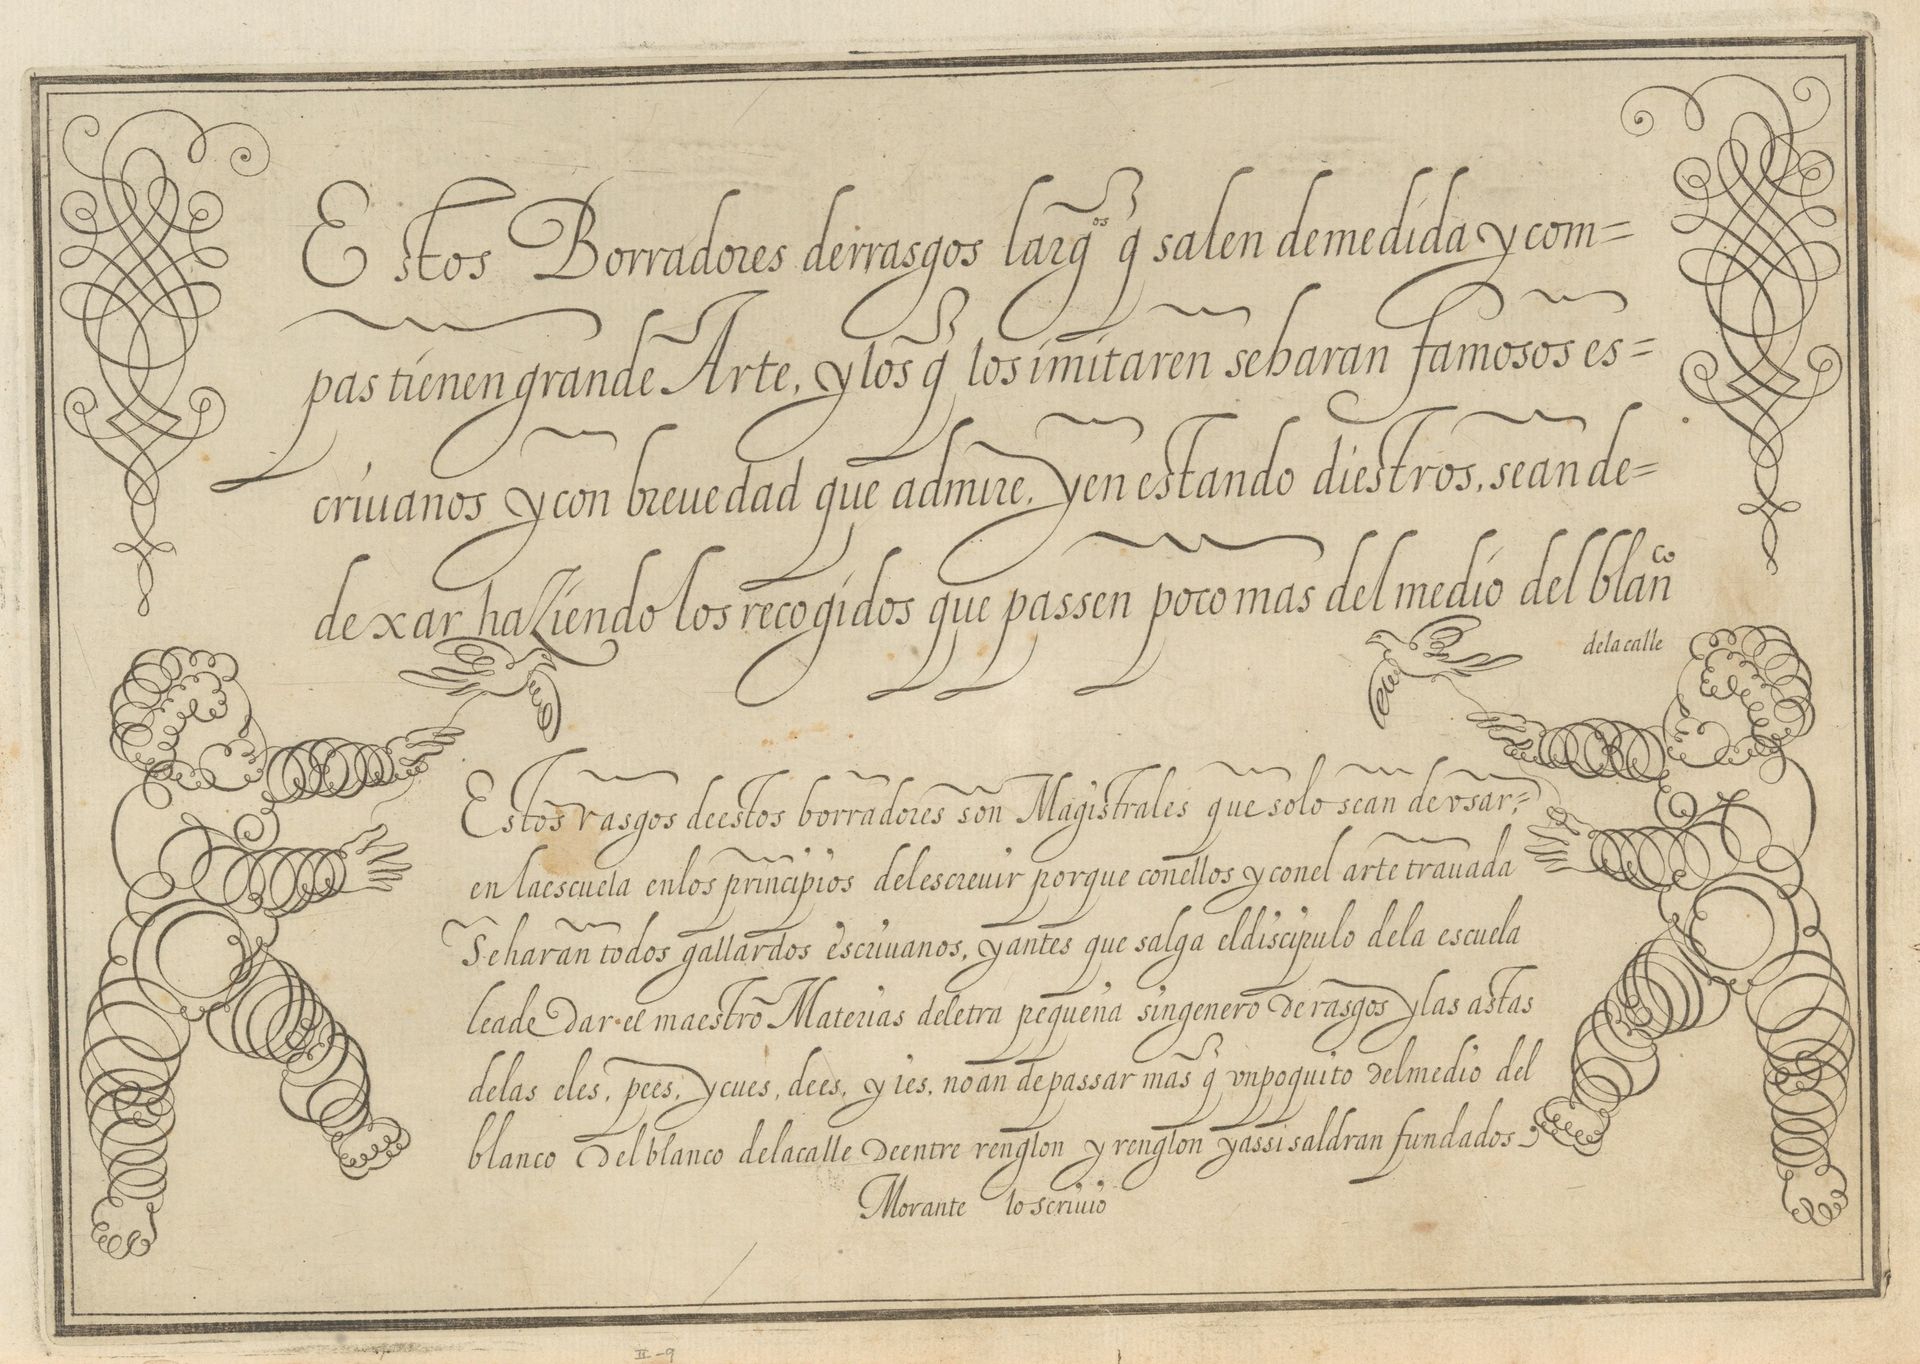 Estos Borradores derrasgos largos q̃ salen demedida y com=
pas tienen grande Arte, y los q̃ los imitaren seharan famosos es=
criuanos y con breuedad que admire, y en estando diestros, sean de=
dexar haziendo los recogidos que passen poco mas del medio del blanco
delacalle
Estos rasgos deestos borradores son Magistrales que solo sean de vsar=
en laescuela enlos principios delescreuir porque conellos y conel arte trauada
Seharan todos gallardos escriuanos, y antes que salga eldiscipulo dela escuela
leade Dar el maestro Materias deletra pequeña singenero De rasgos y las astas
delas eles, pees, y cues, dees, y ies, noan depassar mas q̃ vnpoquito Delmedio del
blanco Delblanco delacalle Deentre renglon y renglon y assi saldran fundados
Morante lo scriuio
II-9